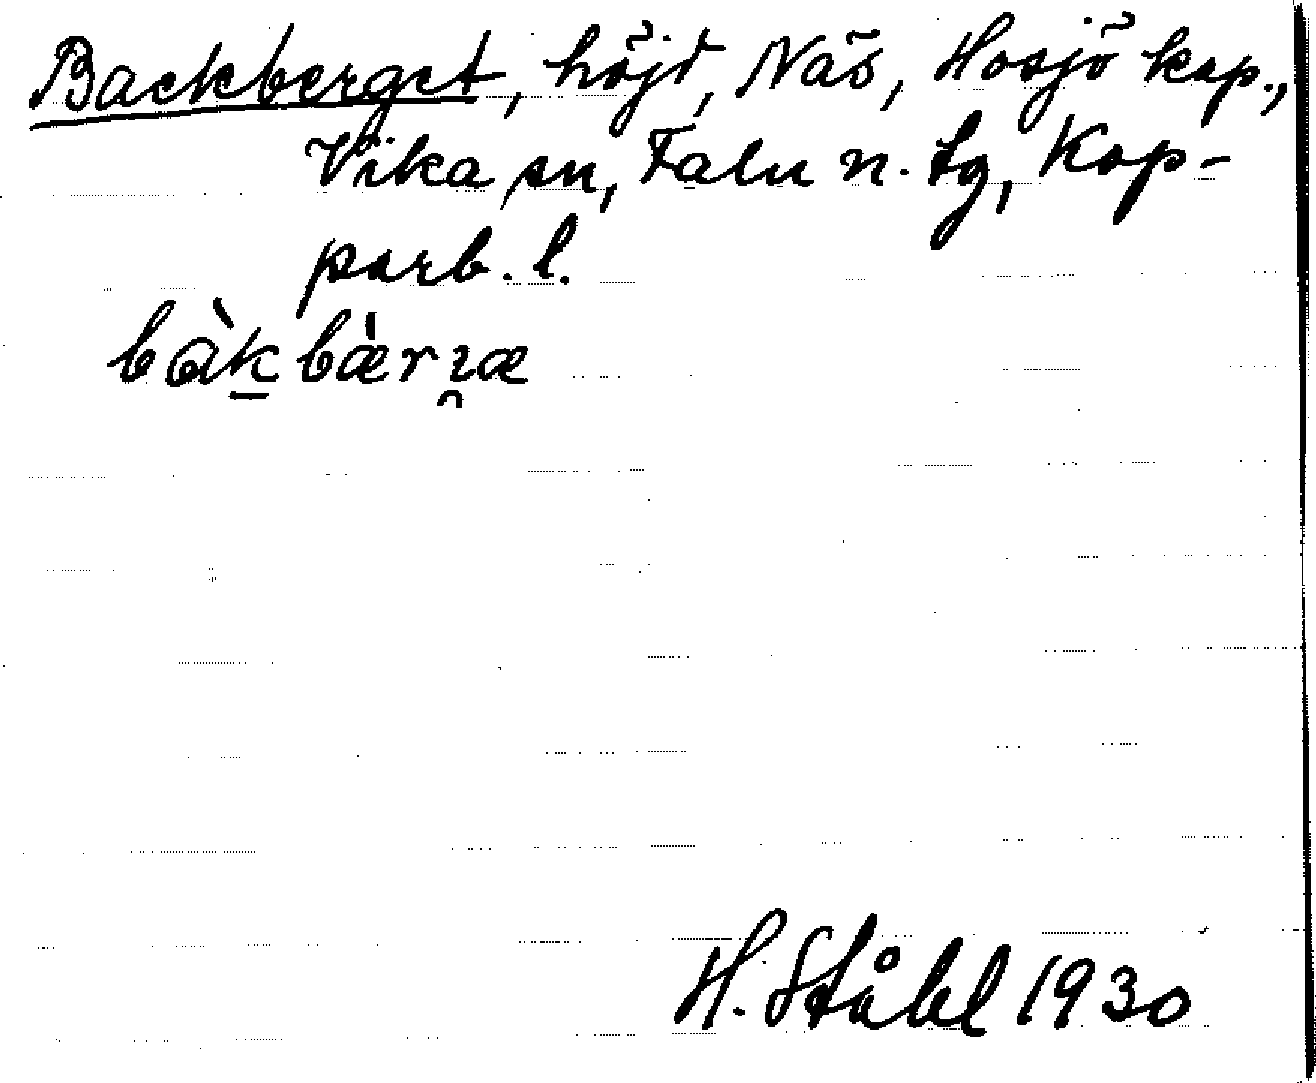 Backberget, höjd, Näs, Hosjö kap.,
Vika sn, Falu n. tg, Kop-
parb. l.
H. Ståhl 1930